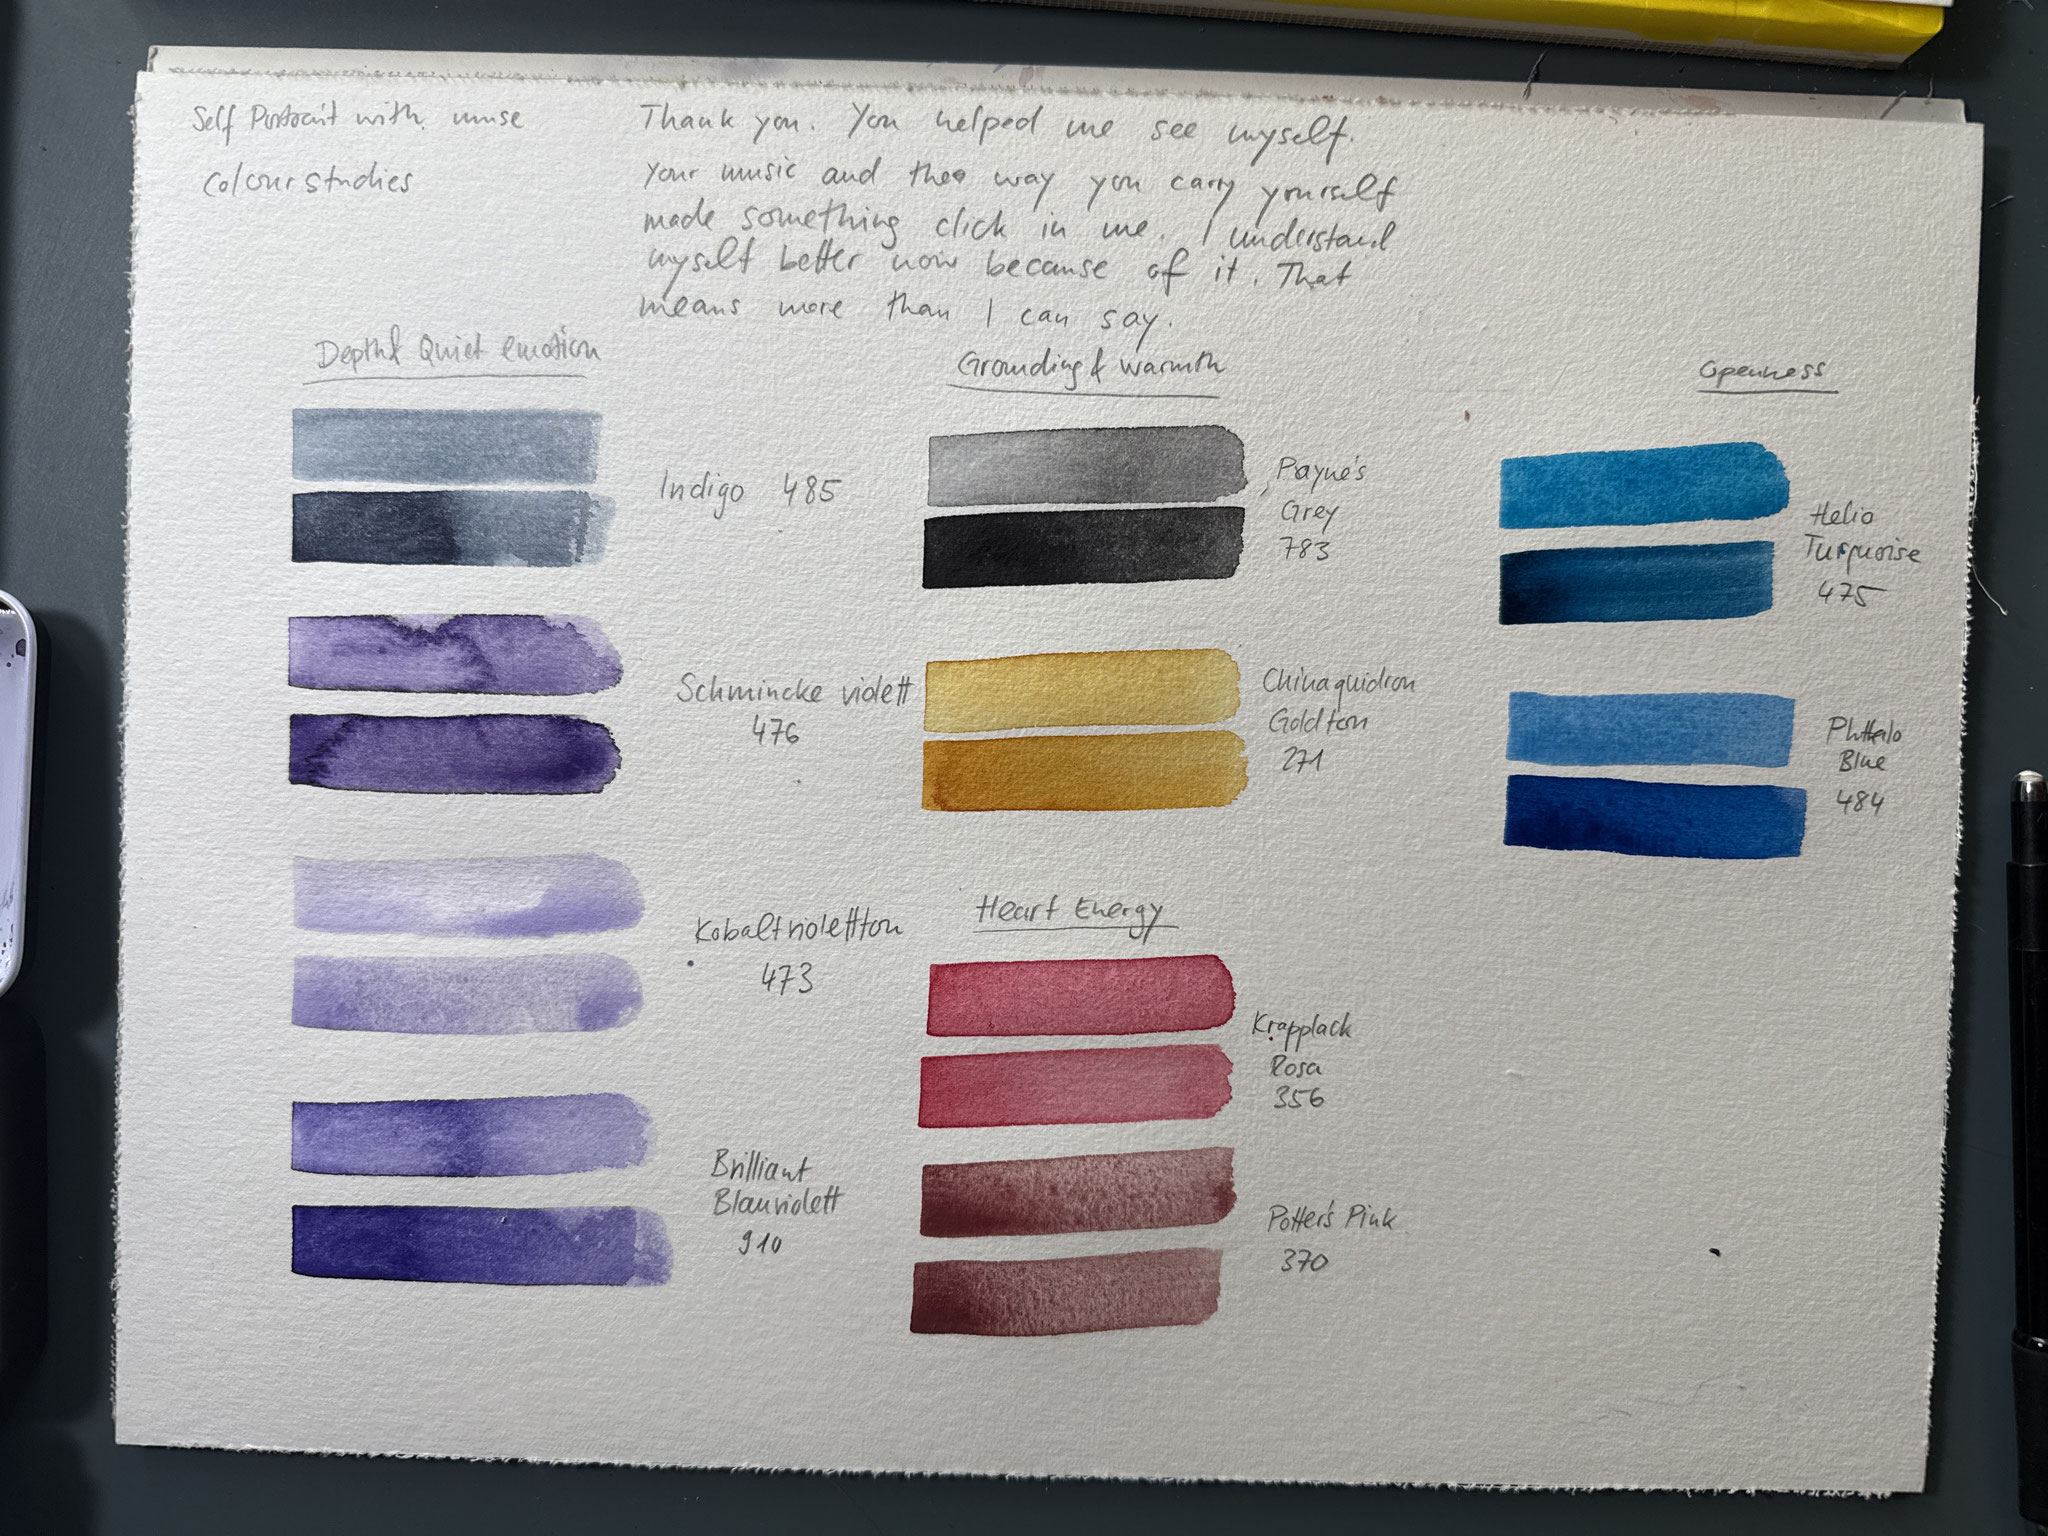 Self Portrait with muse
Colour studies
Thank you. You helped me see myself.
Your music and the way you carry yourself
made something click in me. I understand
myself better now because of it. That
means more than I can say.
Depth & Quiet emotion
Indigo 485
Schmincke violett
476
Kobaltviolettton
473
Brilliant
Blauviolett
910
Grounding & warmth
Payne's
Grey
783
Chinaquidron
Goldton
271
Heart Energy
Krapplack
Rosa
356
Potter's Pink
370
Openness
Helio
Turquoise
475
Phthalo
Blue
484